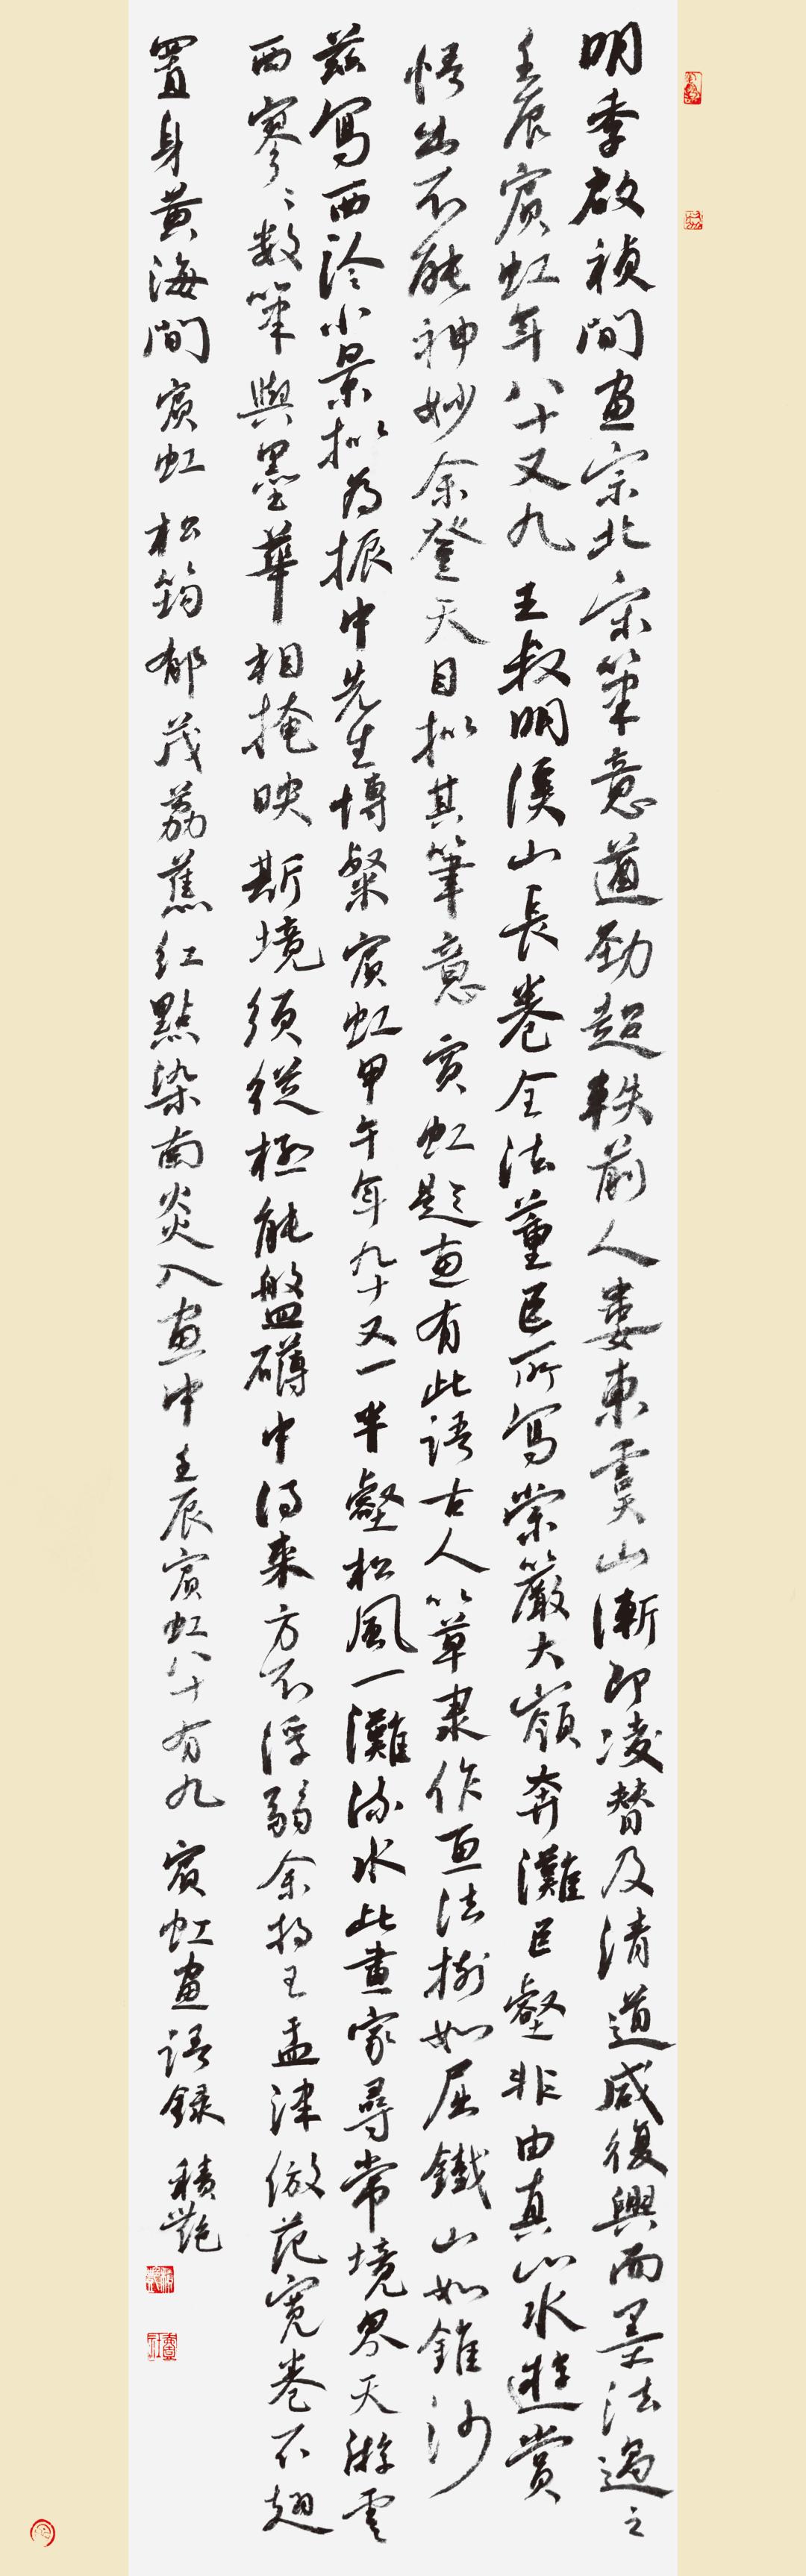 明季啟禎間畫宗北宋筆意遒勁超軼前人婁東虞山漸即凌替及清道咸復興而墨法過之
壬辰賓虹年八十又九 王叔明溪山長卷全法董巨所寫崇巖大嶺奔灘巨壑非由真山水遊賞
悟出不能神妙余登天目擬其筆意 賓虹題畫有此語古人以草隸作畫法樹如屈鐵山如錐沙
茲寫西泠小景擬為振中先生博粲賓虹甲午年九十又一 半壑松風一灘流水此畫家尋常境界天游雲
西寥寥數筆與墨華相掩映斯境須從極能盤礴中得來方不浮弱余於王孟津倣范寬卷不翅
置身黃海間 賓虹 松筠郁茂荔蕉紅點染南炎入畫中 壬辰賓虹八十有九 賓虹畫語錄 積艷